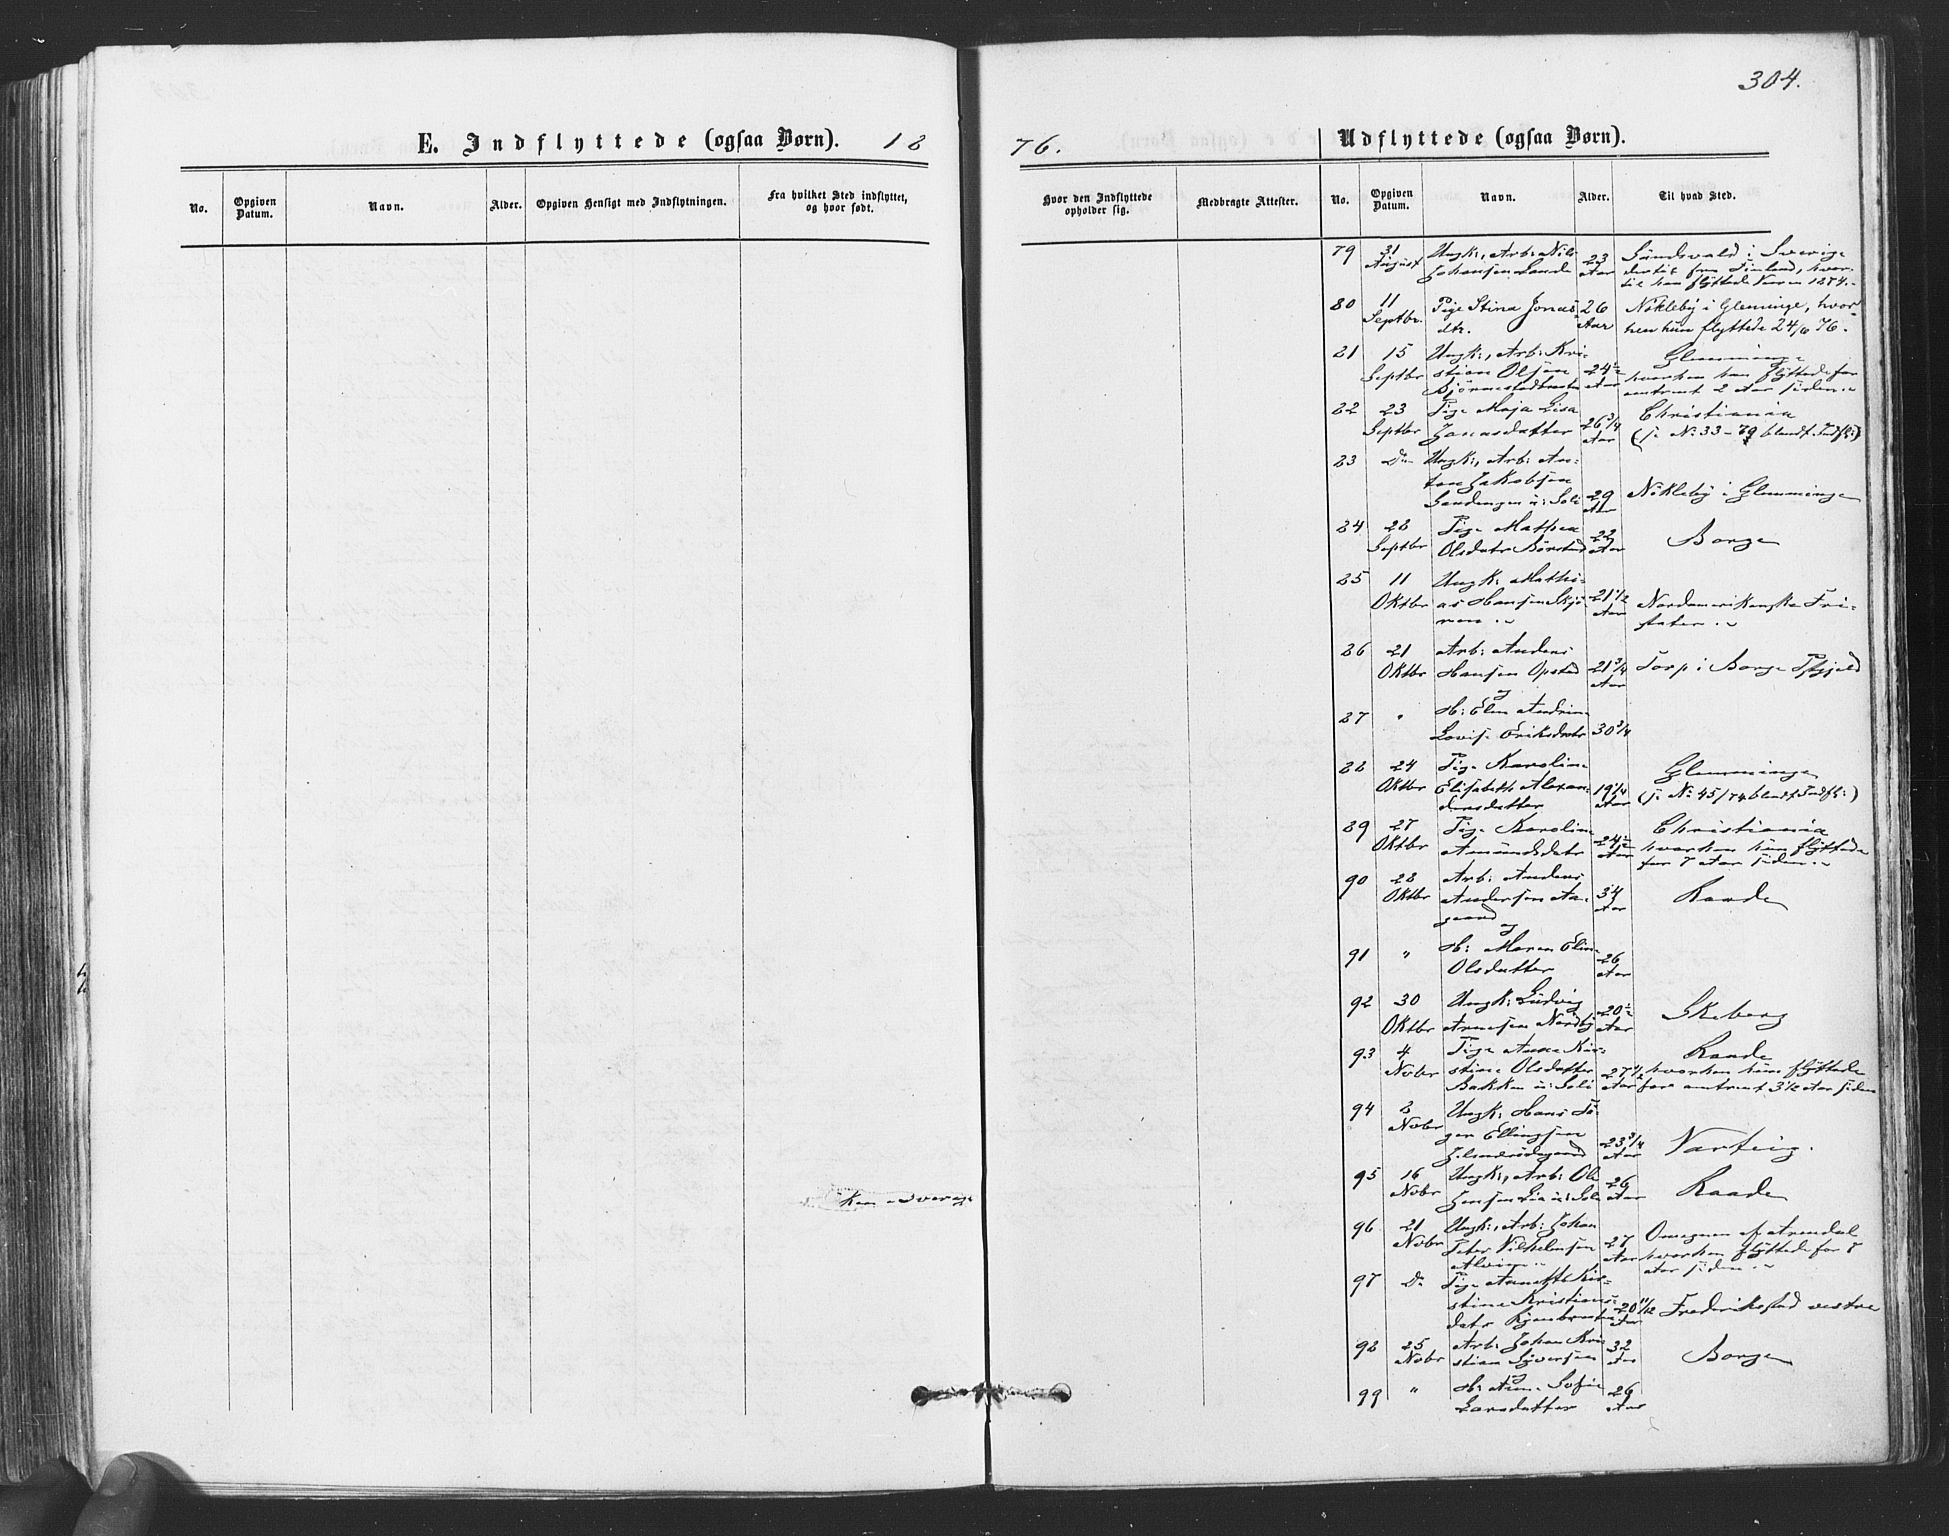 304.
E. Indflyttede (ogsaa Børn). 18
76. Udflyttede (ogsaa Børn).
No. Opgiven Datum. Navn. Alder. Opgiven Hensigt med Indflytningen. Fra hvilket Sted indflyttet, og hvor født.
Hvor den Indflyttede opholder sig. Medbragte Attester. No. Opgiven Datum. Navn. Alder. Til hvad Sted.
79 31 Ungk:, Arb: Nils 23 Sundsvald i Sverige
August Johansen Aar dertil fra Finland, hvor-
til han flyttede 1874.
80 11 Pige Stina Jonas- 26 Nøkleby i Glemminge, hvor-
Septbr. dtr. Aar hen hun flyttede 24/6 76.
81 15 Ungk:, Arb: Kri- Glemminge
Septbr stian Olsen 24½ hvorhen han flyttede for
Aar omtrent 2 Aar siden
82 23 Pige Maja Lisa Christiania
Septbr Jonasdatter 26¾ Aar (s. No: 33-79 blandt Indfl:)
83 Do Ungk:, Arb: An-
ton Jakobsen
i Soli 29 Aar Nøkleby i Glemminge
84 28 Pige Mathea 22
Septbr Olsdatr Børsted Aar Borge
85 11 Ungk: Mathi-
Oktbr as Hansen Skjø- 21½ Aar Nordamerikanske Fri-
ren stater
86 21 Arb: Anders
Oktbr Hansen Opsted 21¾ Aar Torp i Borge
og
87 " H: Elen Andrine
Lovise Eriksdatr 30¾
88 24 Pige Karoline Glemminge
Oktbr Elisabeth Alexan- 19¼ Aar (s. No: 45/74 blandt Indfl:)
dersdatter
89 27 Pige Karoline Christiania
Oktbr Amundsdatr 24½ Aar hvorhen hun flyttede
for 7 Aar siden
90 28 Arb: Anders
Oktbr Andersen Aa- 34 Aar Raade
gaard
og
91 " H: Maren Eline
Olsdatter 26 Aar
92 30 Ungk: Ludvig
Oktbr Arnesen Nordby 20½ Aar Skeberg
93 4 Pige Anne Kir- Raade
Novbr stine Olsdatter 27½ hvorhen hun flyttede
Bakken u: Soli Aar for omtrent 3½ Aar siden
94 8 Ungk: Hans Jø-
Novbr gen Ellingsen
23¾ Aar Varteig.
95 16 Ungk:, Arb: Ole 26
Novbr Jensen Lia u: Soli Aar Raade
96 21 Ungk:, Arb: Johan Omegnen af Arendal
Novbr Peter Vilhelmsen 27 Aar hvorhen flyttede for 7
Alvim Aar siden
97 Do Pige Anette Kir-
stine Kristians- 20 11/12 Aar Frederikstad vestre
datr
98 25 Arb: Johan Kri- 32
Novbr stian Syversen Borge
og
99 " H: Anne Sofie 26
Larsdatter Aar